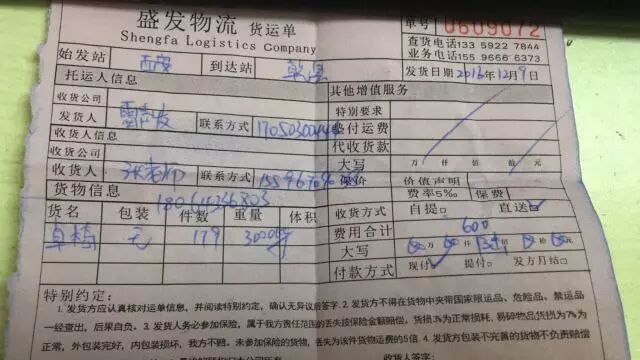 盛发物流 货运单
Shengfa Logistics Company
单号 0609072
查货电话133 5922 7844
业务电话155 9666 6373
始发站 西安 到达站 乾县
发货日期 2016年12月9日
托运人信息 其他增值服务
收货公司 特别要求
发货人 联系方式 垫付运费
收货人信息 代收货款
收货公司 大写 万 仟 佰 拾 元
收货人 张老师 联系方式 保价 价值声明
费率5‰ 保费
货物信息
收货方式 自提□ 直送□
货名 包装 件数 重量 体积
费用合计 600
桌椅 无 179
大写 万 仟 佰 拾 元
付款方式 现付 提付□ 发方月结□
特别约定：
1. 发货方应认真核对运单信息，并阅读特别约定，确认无异议后签字。2. 发货方不得在货物中夹带国家限运品、危险品、禁运品
一经查出，后果自负。3. 发货人务必参加保险，属于我方责任范围的丢失按保险金额赔偿，货损3%为正常损耗，易碎物品货损为7%为
正常，外包装完好，内包装损坏，我方不赔。未参加保险的货物，丢失为该件货物运费的5倍。4. 发货方包装不完善的货物不负责赔偿
收货人签字：